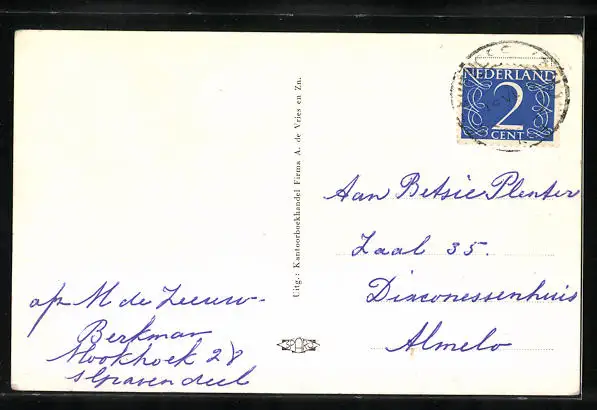 NEDERLAND
2
CENT
Uitg.: Kantoorboekhandel Firma A. de Vries en Zn.
Aan Betsie Plenter
Zaal 35.
Diaconessenhuis
Almelo
M de Zeeuw-
Berkman
Mookhoek 28
's Gravendeel